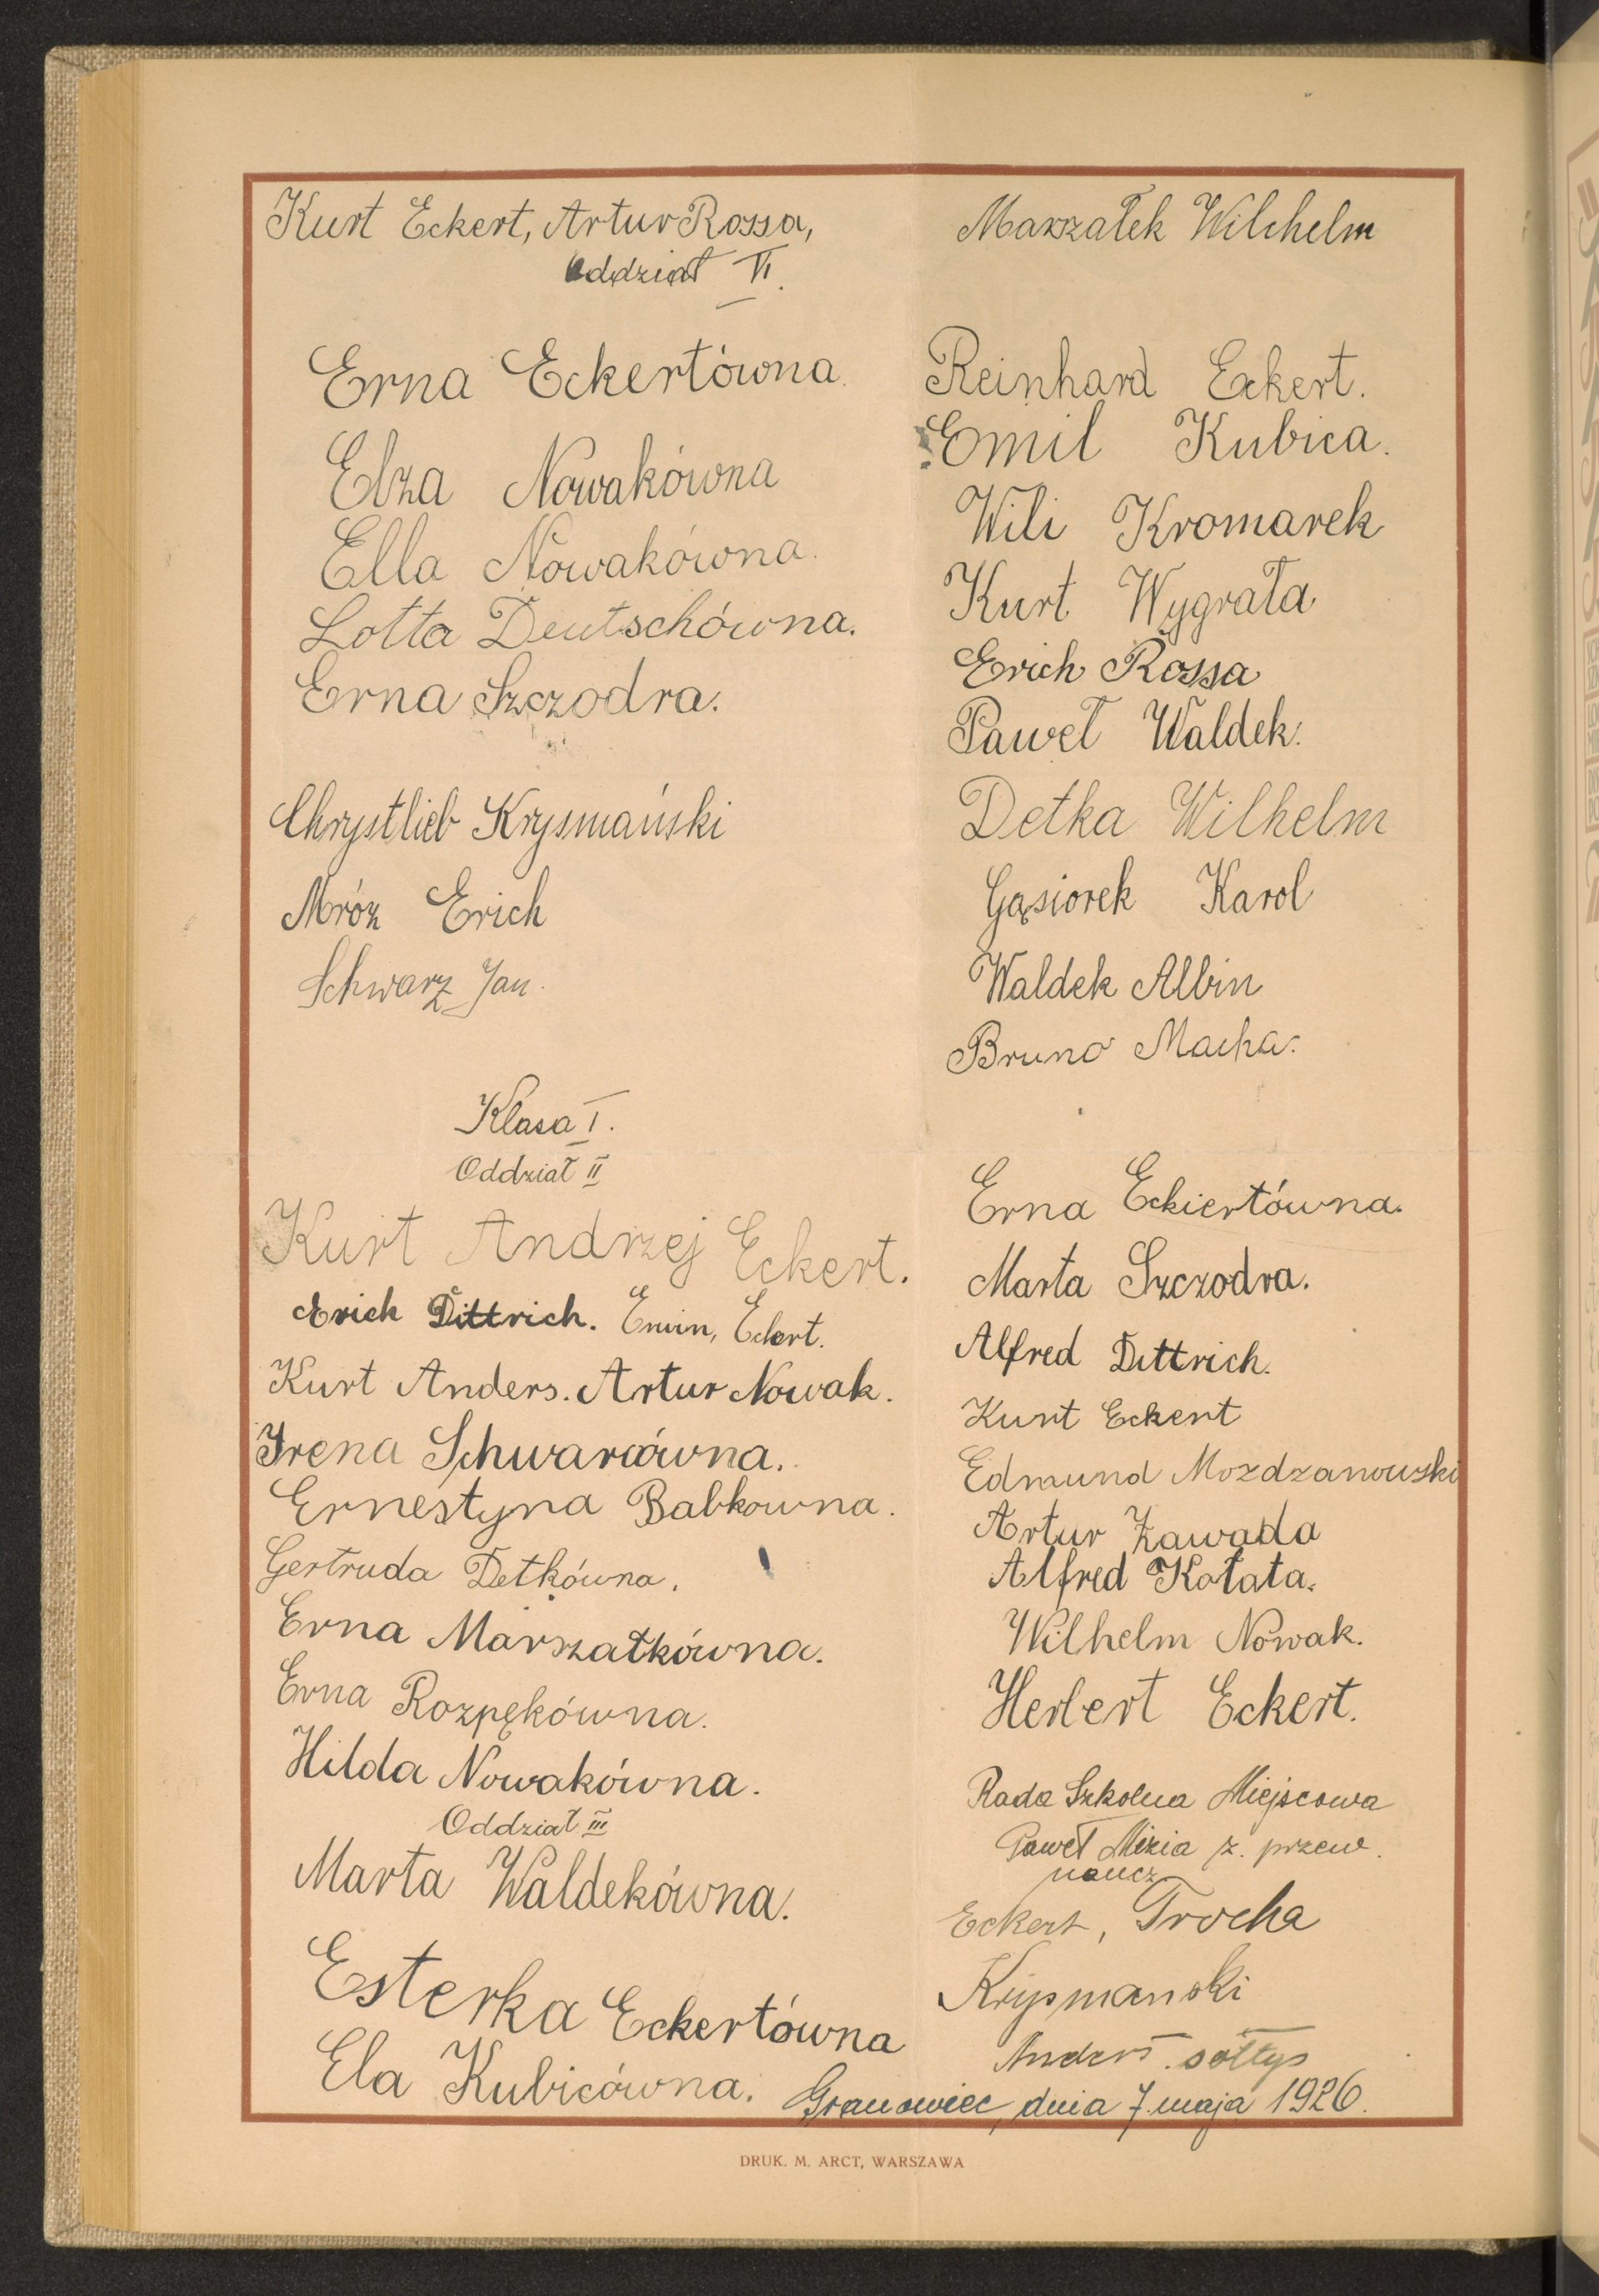 Kurt Eckert, Artur Rossa,
Oddział VI.
Erna Eckertówna
Elza Nowakówna
Ella Nowakówna.
Lotta Deutschówna.
Erna Szczodra.
Chrystlieb Krysmański
Mróz Erich
Schwarz Jan.
Klasa I.
Oddział II
Kurt Andrzej Eckert.
Erich Dittrich. Erwin, Eckert.
Kurt Anders. Artur Nowak.
Irena Schwarcówna.
Ernestyna Babkowna.
Gertruda Detkówna.
Erna Marszałkówna.
Erna Rozpękówna.
Hilda Nowakówna.
Oddział III
Marta Waldekówna.
Esterka Eckertówna
Ela Kubicówna.
Marszałek Wilchelm
Reinhard Eckert.
Emil Kubica.
Wili Kromarek
Kurt Wygrała
Erich Rossa
Paweł Waldek.
Detka Wilhelm
Gąsiorek Karol
Waldek Albin
Bruno Macha.
Erna Eckiertówna.
Marta Szczodra.
Alfred Dittrich.
Kurt Eckert
Edmund Mozdzanowski
Artur Zawada
Alfred Kołata.
Wilhelm Nowak.
Herbert Eckert.
Rada Szkolna Miejscowa
Paweł Mizia z. przew.
naucz
Eckert, Trocha
Krysmanski
Anders sołtys
Granowiec, dnia 7. maja 1926.
DRUK. M. ARCT, WARSZAWA